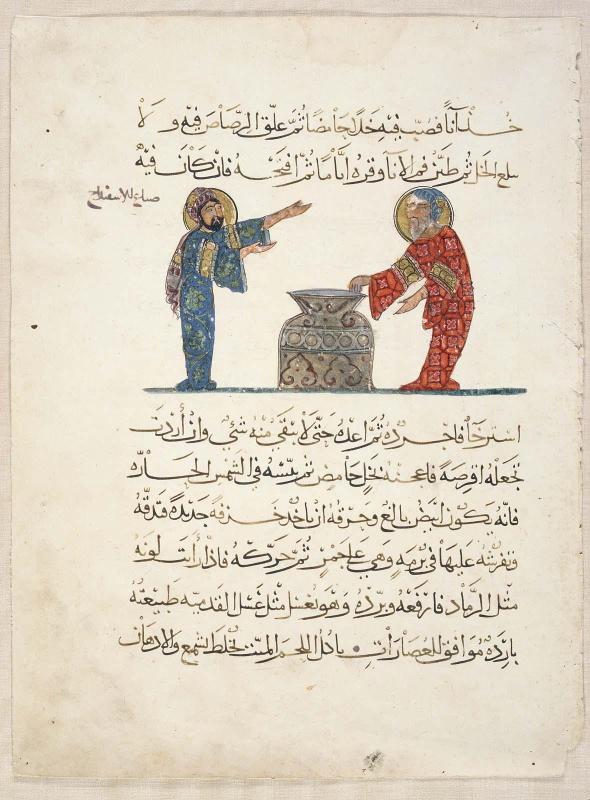 خذ اناً فصب فيه خلا حامضاً ثم علق الرصاص فيه ولا
يبلغ الخل ثم طين فم الاناء وقره اياماً ثم افتحه فان كان فيه
صناعة الاسفيداج
استرخاً فاجرده ثم اعده حتى لا يبقى منه شئ وان أردت
تجعله اقرصة فاعجنه بخل حامض ثم يبسه في الشمس الحارة
فانه يكون ابيض بالغ وحرقه ان ياخذ خزفه جديدة فدقه
عليها في برمه وهي على جمر ثم حركه فاذا رأيت لونه
مثل الرماد فارفعه وبرده وهو يغسل مثل غسل القدميه طبيعته
بارده موافق للعصارات يأدل اللحم الميت يخلط بالشمع والادهان